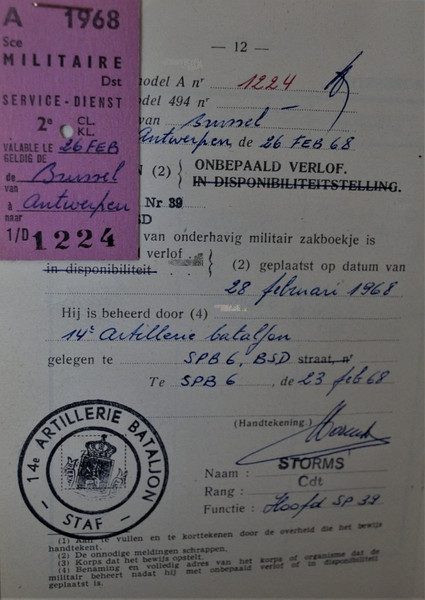 A 1968
Sce
MILITAIRE
Dst
SERVICE-DIENST
2e CL.
KL.
VALABLE LE 26 FEB
GELDIG DE
de Brussel
van
à Antwerpen
naar
1/D 1224
— 12 —
odel A nr 1224
odel 494 nr
van Brussel
Antwerpen de 26 FEB 68
(2) } ONBEPAALD VERLOF.
IN DISPONIBILITEITSTELLING.
Nr 39
SD
van onderhavig militair zakboekje is
verlof
in disponibiliteit
(2) geplaatst op datum van
28 februari 1968
Hij is beheerd door (4)
14e Artillerie bataljon
gelegen te SPB 6, BSD straat, nr
Te SPB 6, de 23 feb 68
(Handtekening.)
Naam : STORMS
Rang : Cdt
Functie : Hoofd SP 39
14e ARTILLERIE BATALJON
– STAF –
(1) Aan te vullen en te korttekenen door de overheid die het bewijs
handtekent.
(2) De onnodige meldingen schrappen.
(3) Korps dat het bewijs opstelt.
(4) Benaming en volledig adres van het korps of organisme dat de
militair beheert nadat hij met onbepaald verlof of in disponibiliteit
geplaatst is.